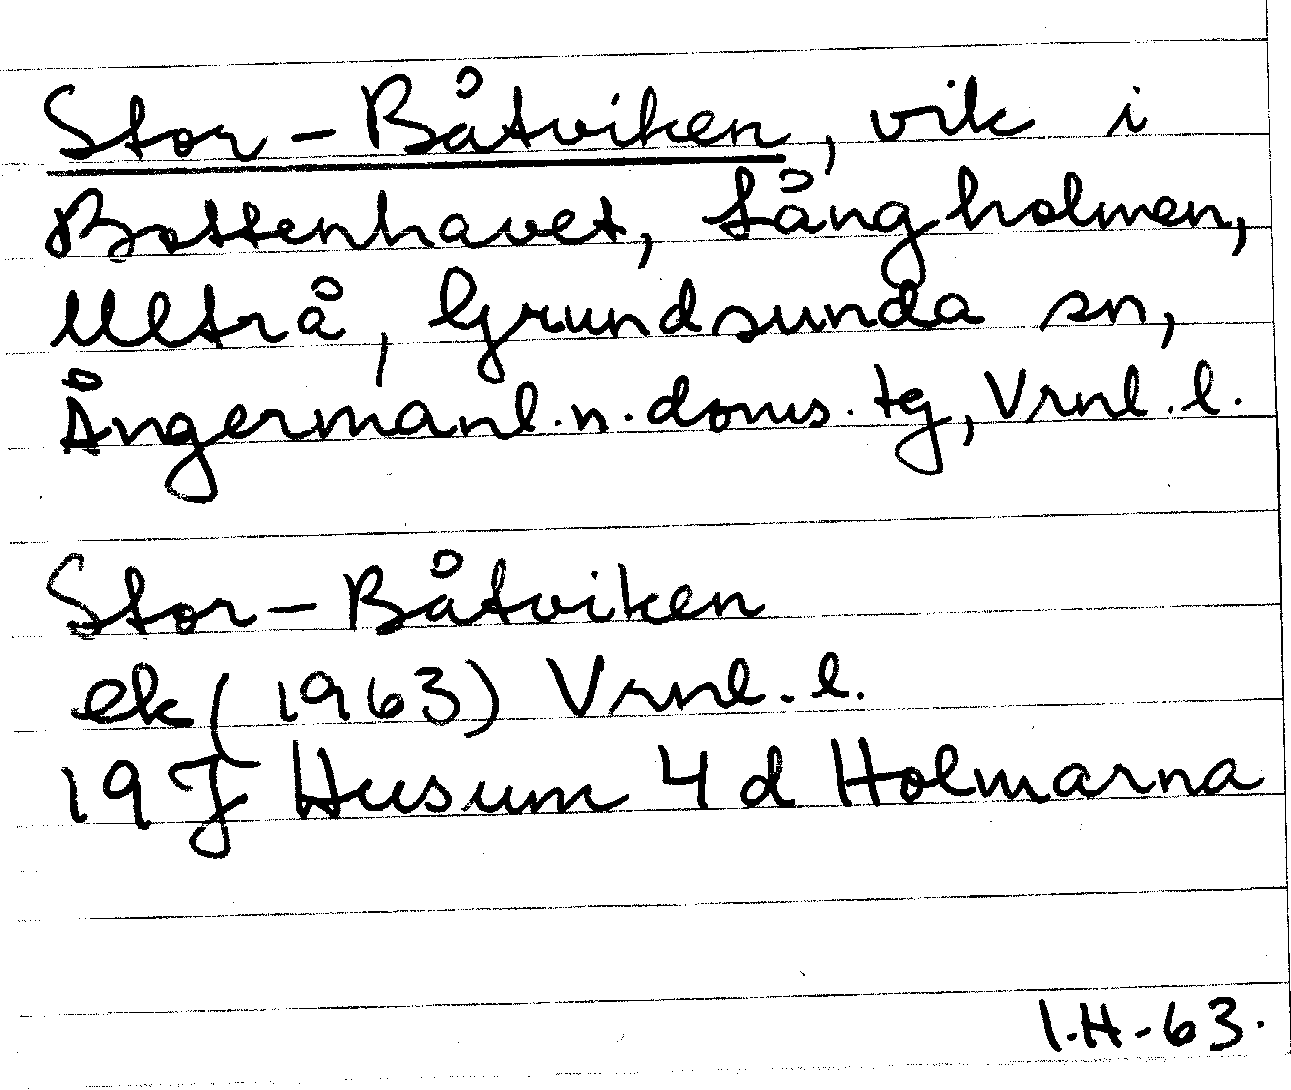 Stor-Båtviken, vik i
Bottenhavet, Långholmen,
Ultrå, Grundsunda sn,
Ångermanl.n.doms.tg, Vrnl.l.
Stor-Båtviken
ek (1963) Vrnl.l.
19 J Husum 4 d Holmarna
I.H-63.